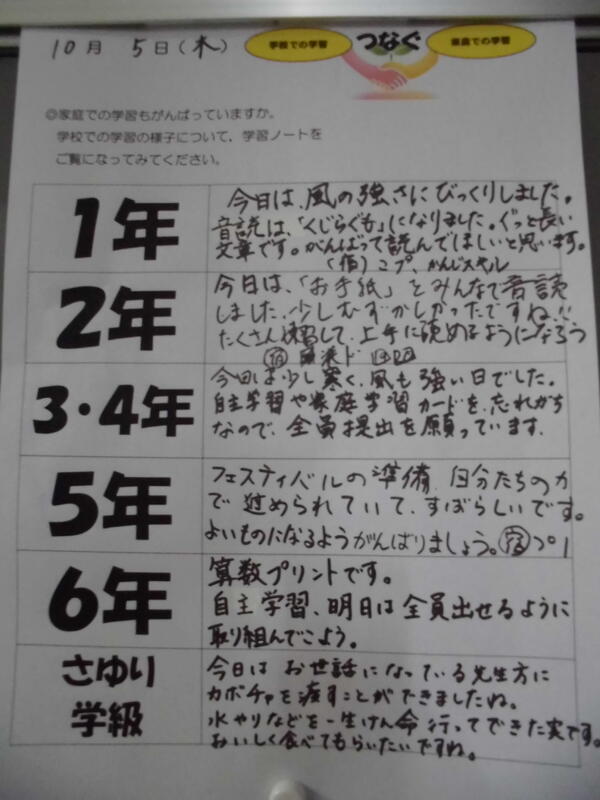 10月 5日(木)
学校での学習 つなぐ 家庭での学習
◎家庭での学習もがんばっていますか。
学校での学習の様子について、学習ノートを
ご覧になってみてください。
1年
今日は、風の強さにびっくりしました。
音読は、「くじらぐも」になりました。ぐっと長い
文章です。がんばって読んでほしいと思います。
(宿)こプ、かんじスキル
2年
今日は、「お手紙」をみんなで音読
しました。少しむずかしかったですね!!
たくさん練習して、上手に読めるようになろう
宿
3・4年
今日は少し寒く、風も強い日でした。
自主学習や家庭学習カードを忘れがち
なので、全員提出を願っています。
5年
フェスティバルの準備、自分たちの力
で進められていて、すばらしいです。
よいものになるようがんばりましょう。宿プリ
6年
算数プリントです。
自主学習、明日は全員出せるように
取り組んでこよう。
さゆり
学級
今日はお世話になっている先生方に
カボチャを渡すことができましたね。
水やりなどを一生けん命行ってできた実です。
おいしく食べてもらいたいですね。